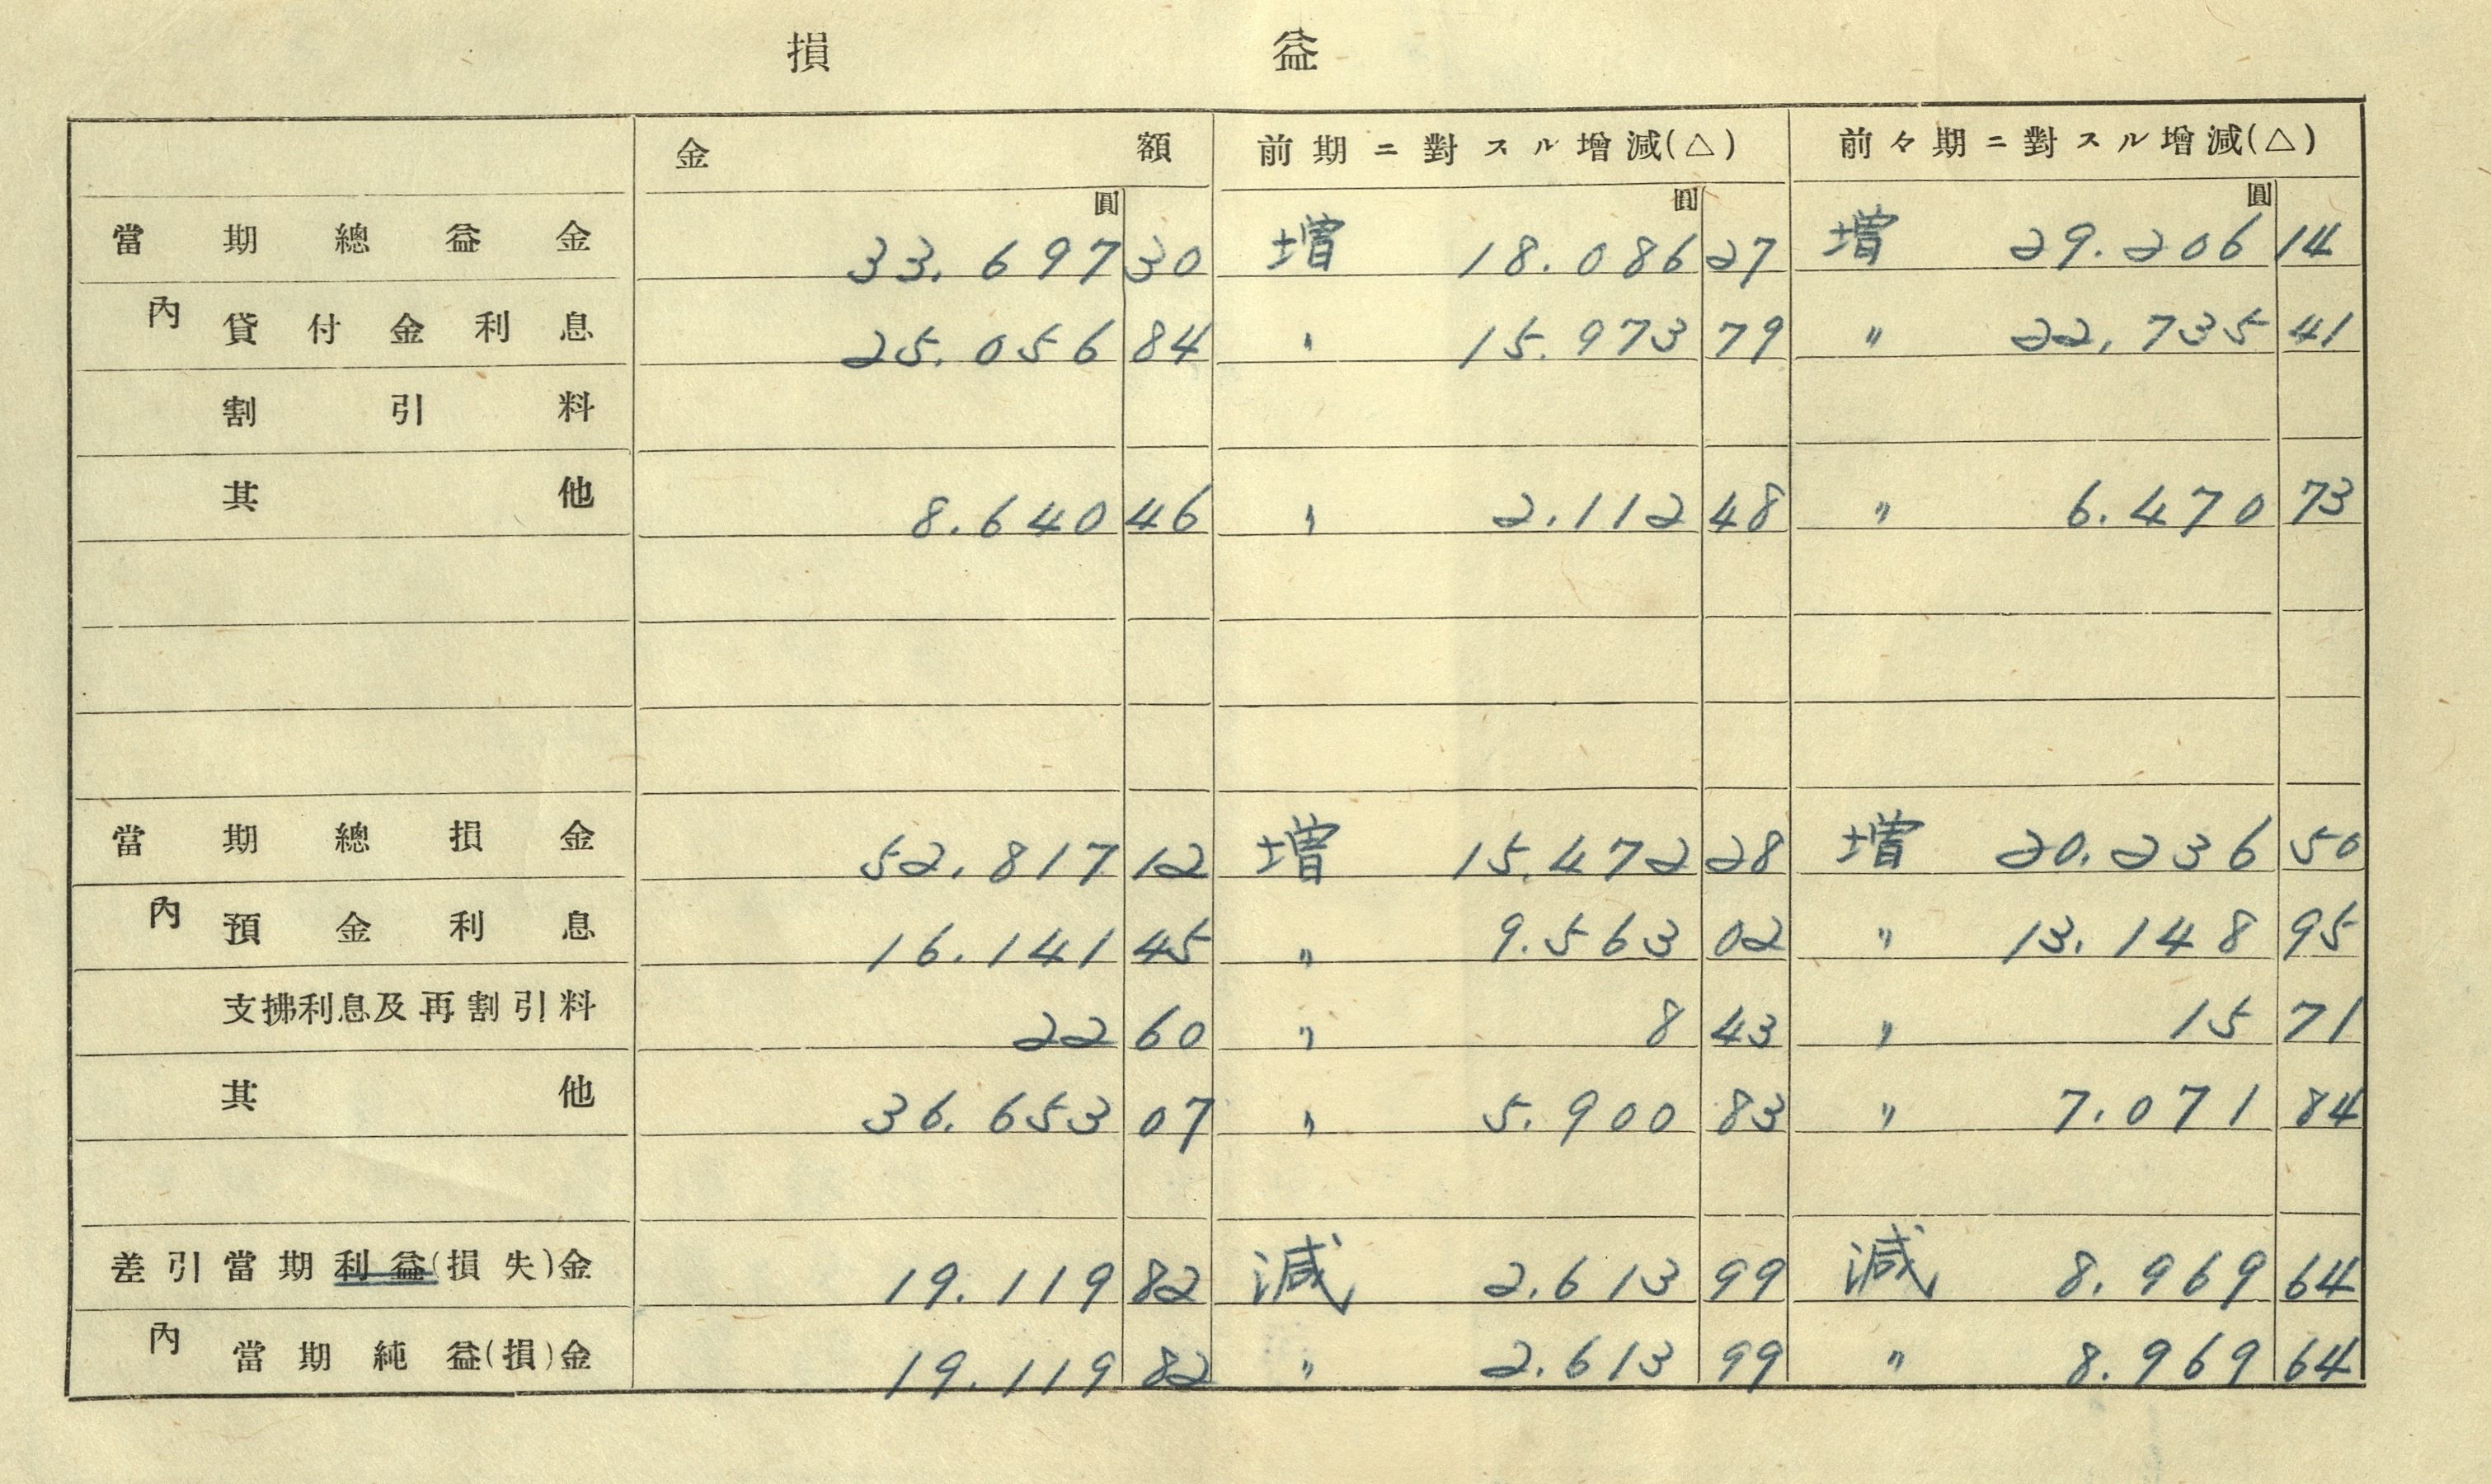 損益
金額 前期ニ對スル增減(△) 前々期ニ對スル增減(△)
圓 圓 圓
當期總益金 33.697 30 増 18.086 27 増 29.206 14
內 貸付金利息 25.056 84 〃 15.973 79 〃 22.735 41
割引料
其他 8.640 46 〃 2.112 48 〃 6.470 73
當期總損金 52.817 12 増 15.472 28 増 20.236 50
內 預金利息 16.141 45 〃 9.563 02 〃 13.148 95
支拂利息及再割引料 22 60 〃 8 43 〃 15 71
其他 36.653 07 〃 5.900 83 〃 7.071 84
差引當期利益(損失)金 19.119 82 減 2.613 99 減 8.969 64
內 當期純益(損)金 19.119 82 〃 2.613 99 〃 8.969 64